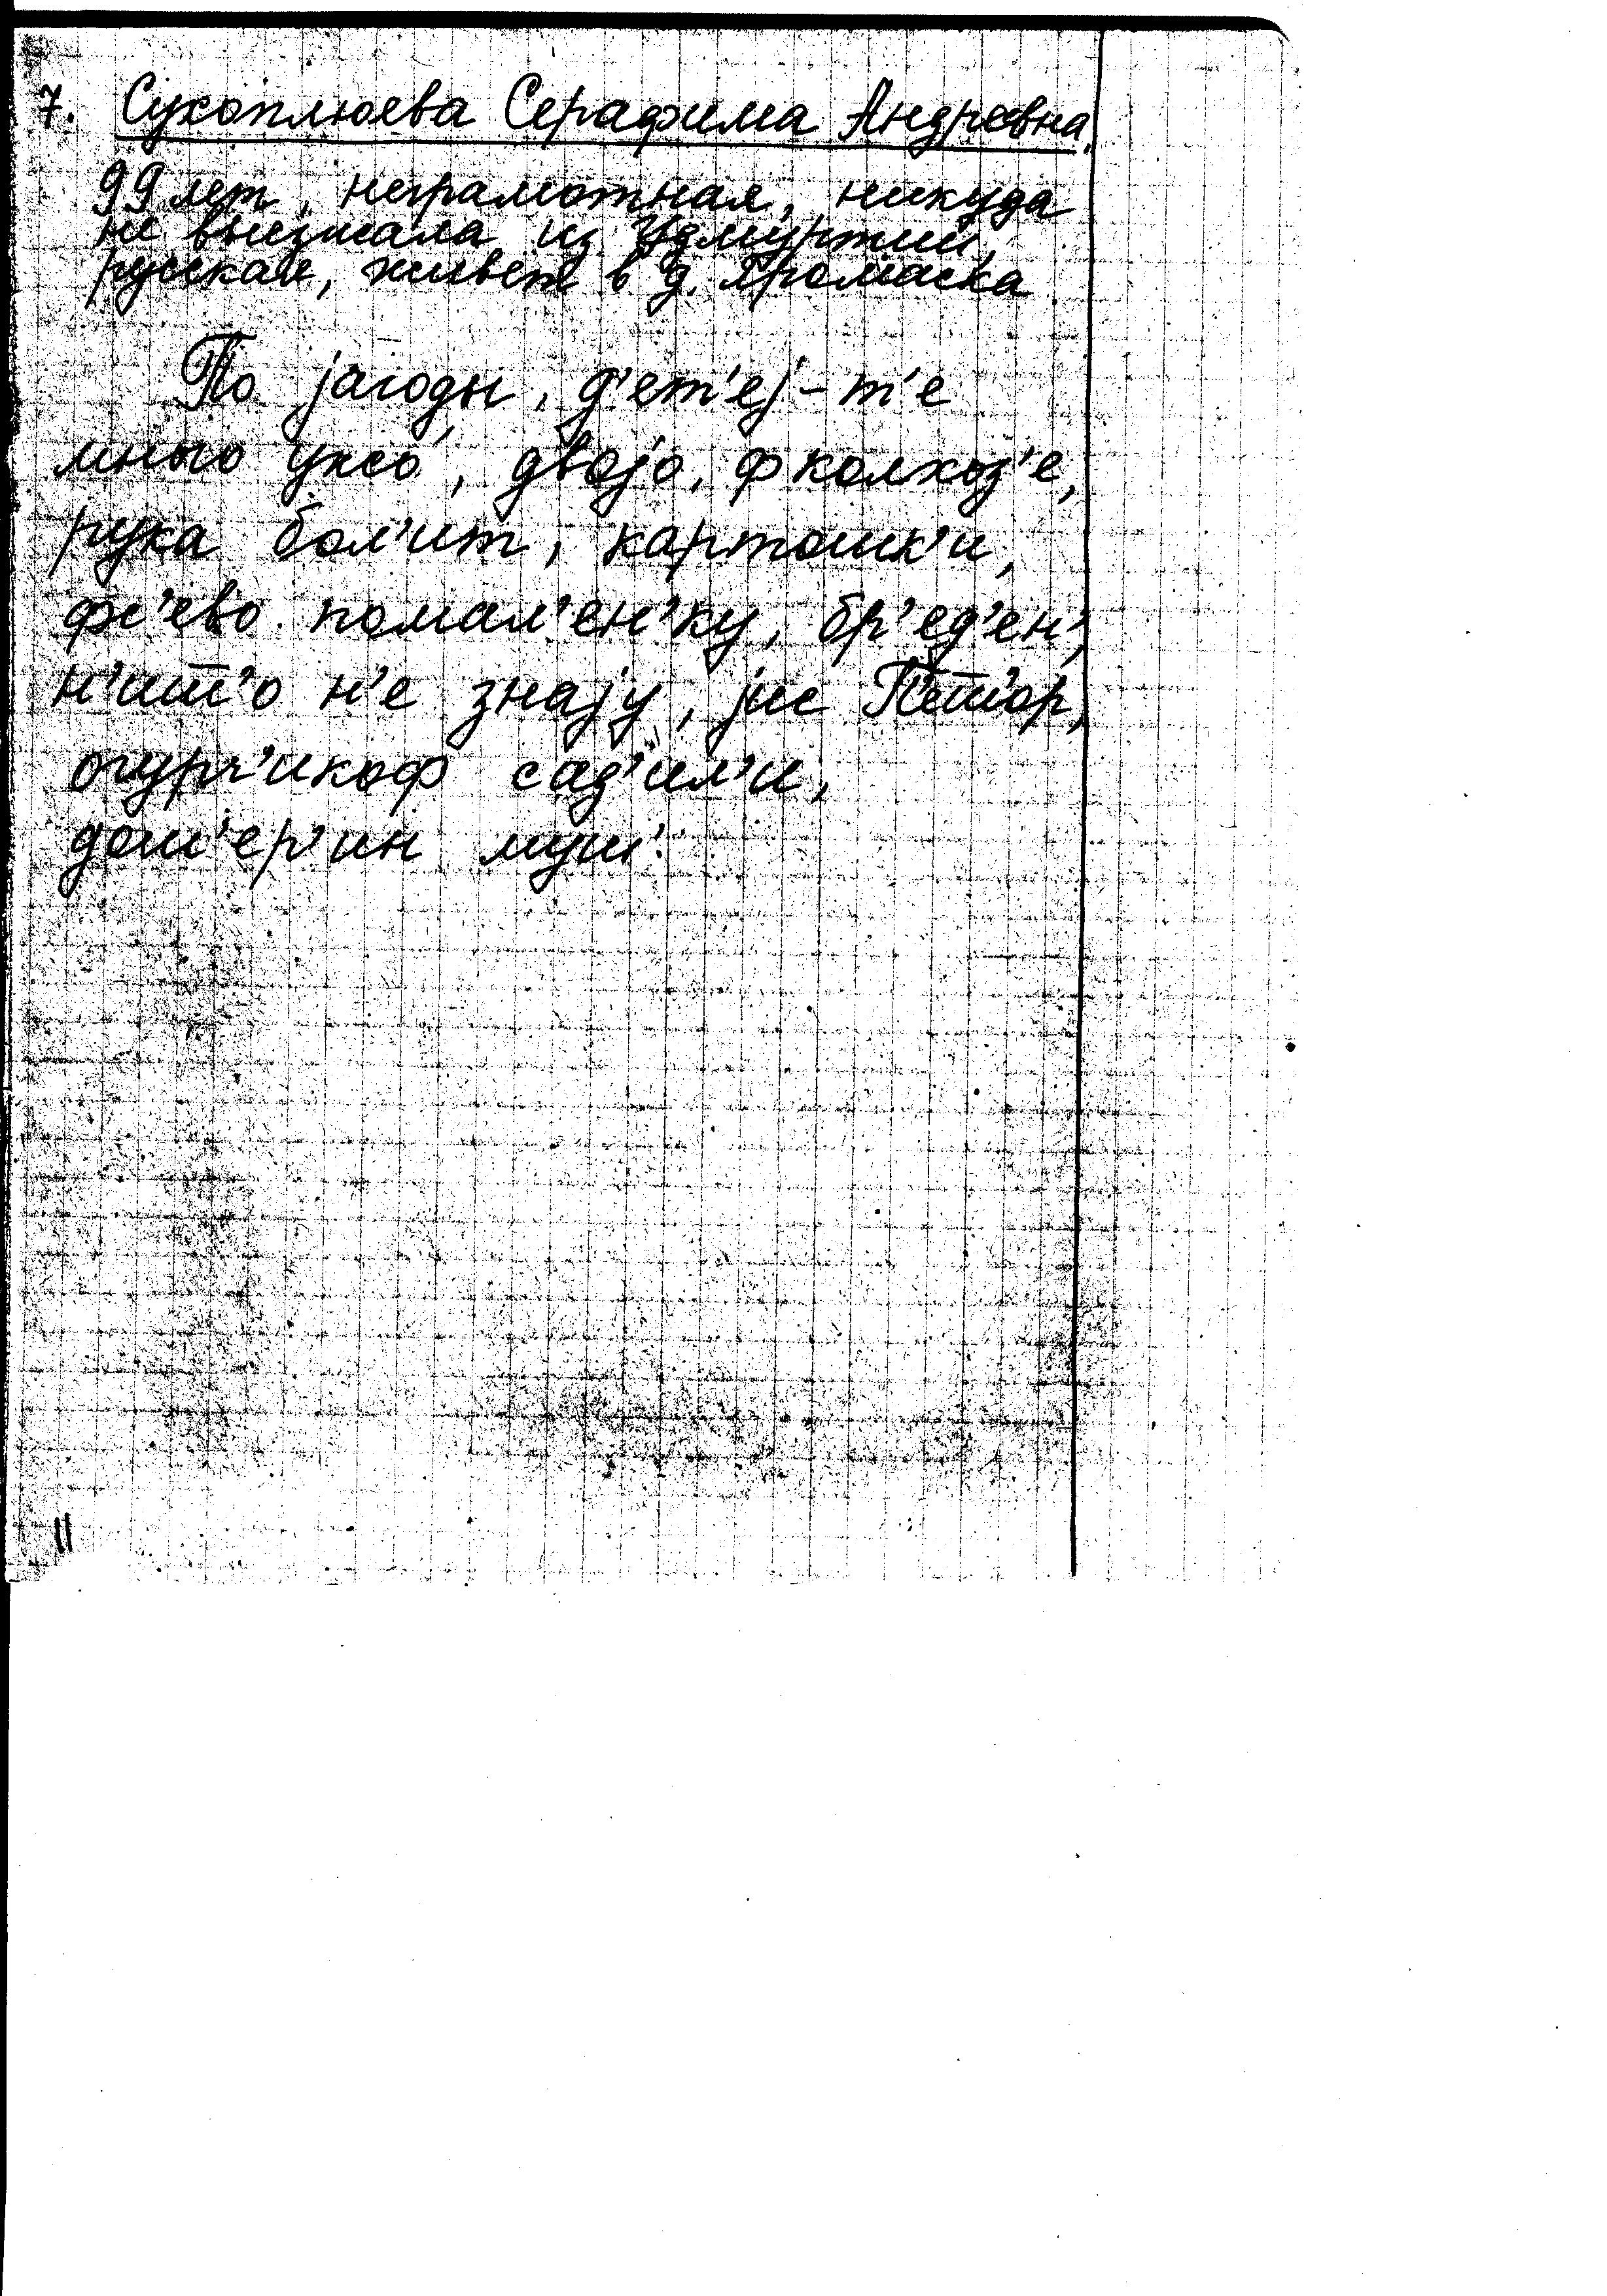 7. Сухоплюева Серафима Андреевна,
99 лет, неграмотная, никуда
не выезжала из Удмуртии,
русская, живет в д. Яромаска
По jагоды, д'ет'еj-т'е
много ужо, двоjо, ф колхоз'е,
рука бол'ит, картошк'и,
фс'ево помал'ен'ку, бр'ед'ен',
н'ишт'о н'е знаjу, П'ет'ор,
огурч'икоф сад'ил'и,
доч'ер'ин муш.